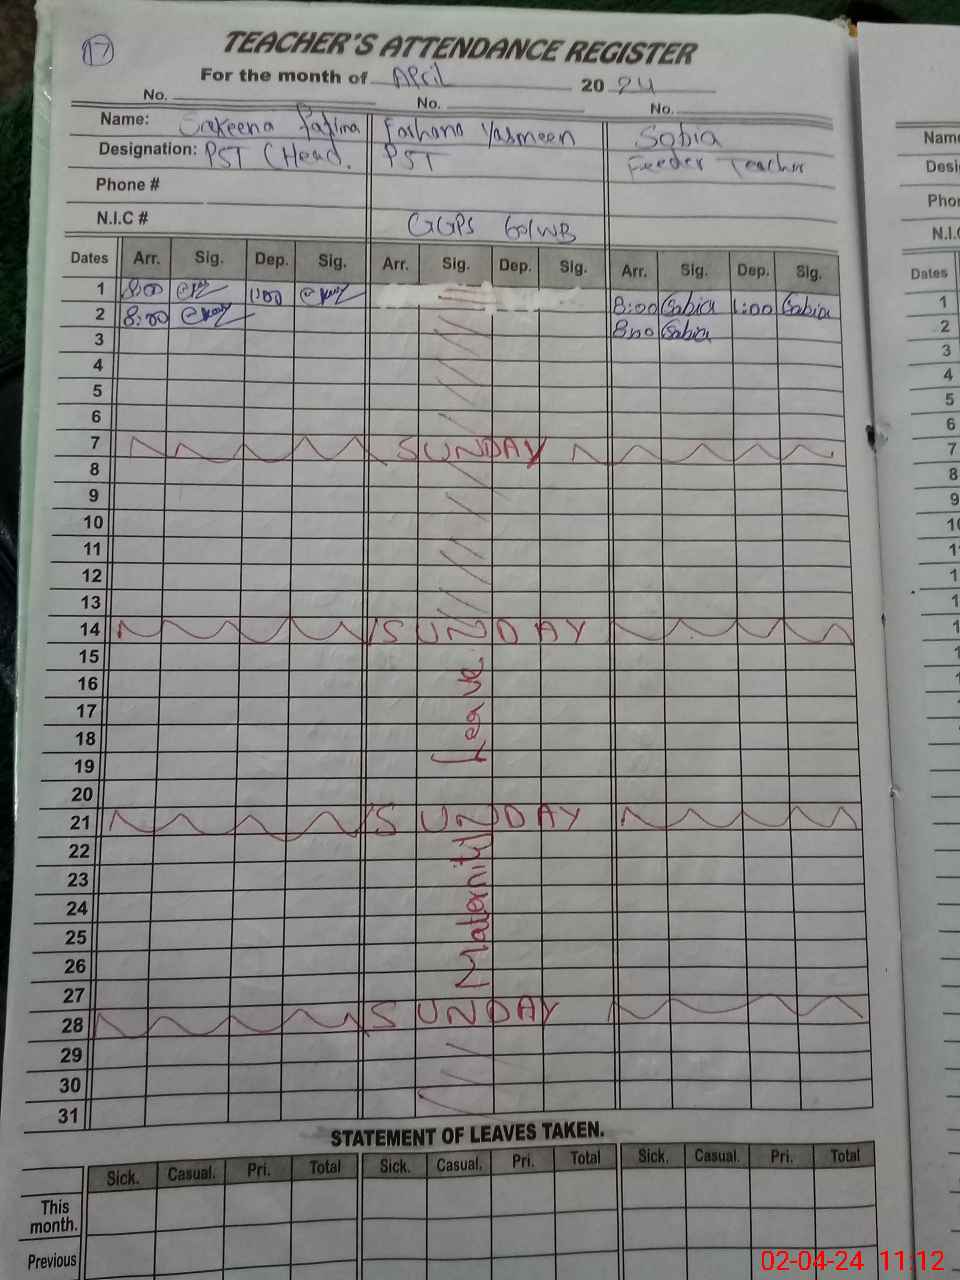 17
TEACHER'S ATTENDANCE REGISTER
For the month of April 2024
No. No. No.
Name: Sakeena Fatima Farhana Yasmeen Sabia
Designation: PST (Head. PST Feeder Teacher
Phone #
N.I.C # GGPS 60/WB
Dates Arr. Sig. Dep. Sig. Arr. Sig. Dep. Sig. Arr. Sig. Dep. Sig.
1 8:00 1:00 8:00 Sabia 1:00 Sabia
2 8:00 8:00 Sabia
3
4
5
6
7 SUNDAY
8
9
10
11
12
13
14 SUNDAY
15
16
17
18
19
20
21 SUNDAY
22
23
24
25
26
27
28 SUNDAY
29
30
31
Maternity Leave
STATEMENT OF LEAVES TAKEN.
Sick. Casual. Pri. Total Sick. Casual. Pri. Total Sick. Casual. Pri. Total
This
month.
Previous
Name
Desi
Phon
N.I.C
Dates
1
2
3
4
5
6
7
8
9
10
02-04-24 11:12